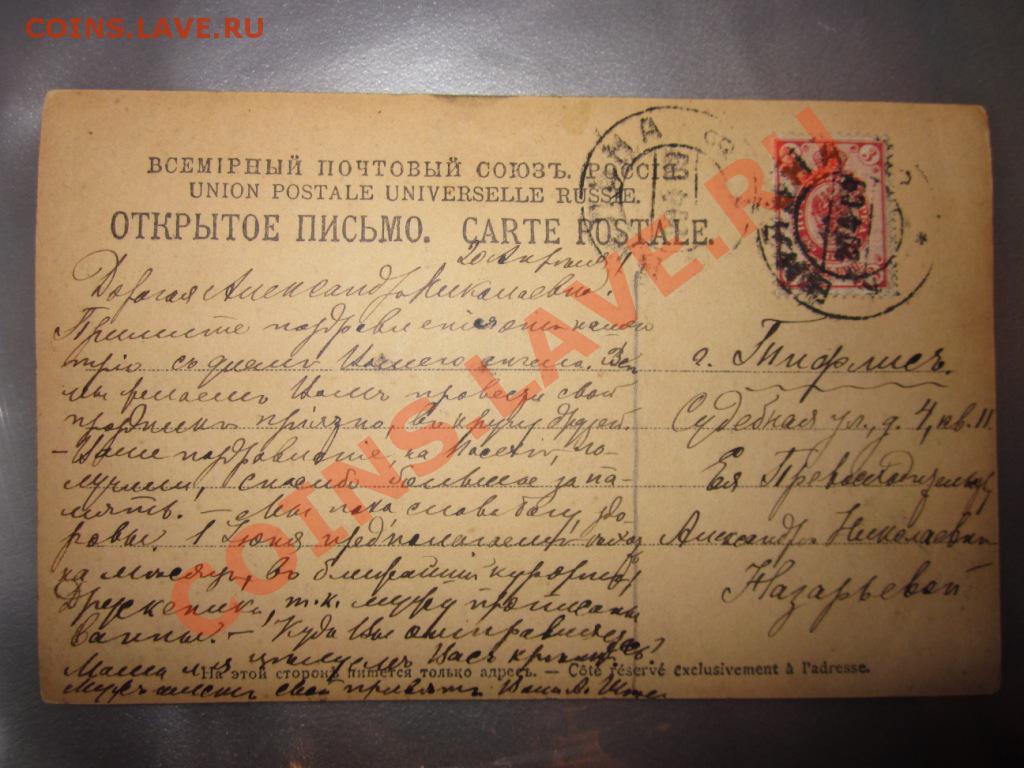 COINS.LAVE.RU
ВСЕМІРНЫЙ ПОЧТОВЫЙ СОЮЗЪ. РОССІЯ.
UNION POSTALE UNIVERSELLE RUSSIE.
ОТКРЫТОЕ ПИСЬМО. CARTE POSTALE.
20 Апрѣля
Дорогая Александра Николаевна!
Примите поздравленія отъ
съ днемъ Вашего ангела.
мы желаемъ Вамъ провести свой
праздникъ пріятно, въ кругу друзей.
– Ваше поздравленіе на Пасхѣ, по-
лучили, спасибо большое за па-
мять. – Мы пока слава богу здо-
ровы. 1 Іюня предполагаемъ
на мѣсяцъ, въ ближайшій курортъ
Друскеники, т.к. мужу прописаны
ванны. – Куда Вы отправляетесь?
Мама и я цѣлуемъ Васъ крѣпко
Мужъ шлетъ свой привѣтъ Ваша А.
г. Тифлисъ.
Судебная ул., д. 4, кв. 11
Ея Превосходительству
Александрѣ Николаевнѣ
Назарьевой
На этой сторонѣ пишется только адресъ. – Côté réservé exclusivement à l'adresse.
COINS.LAVE.RU